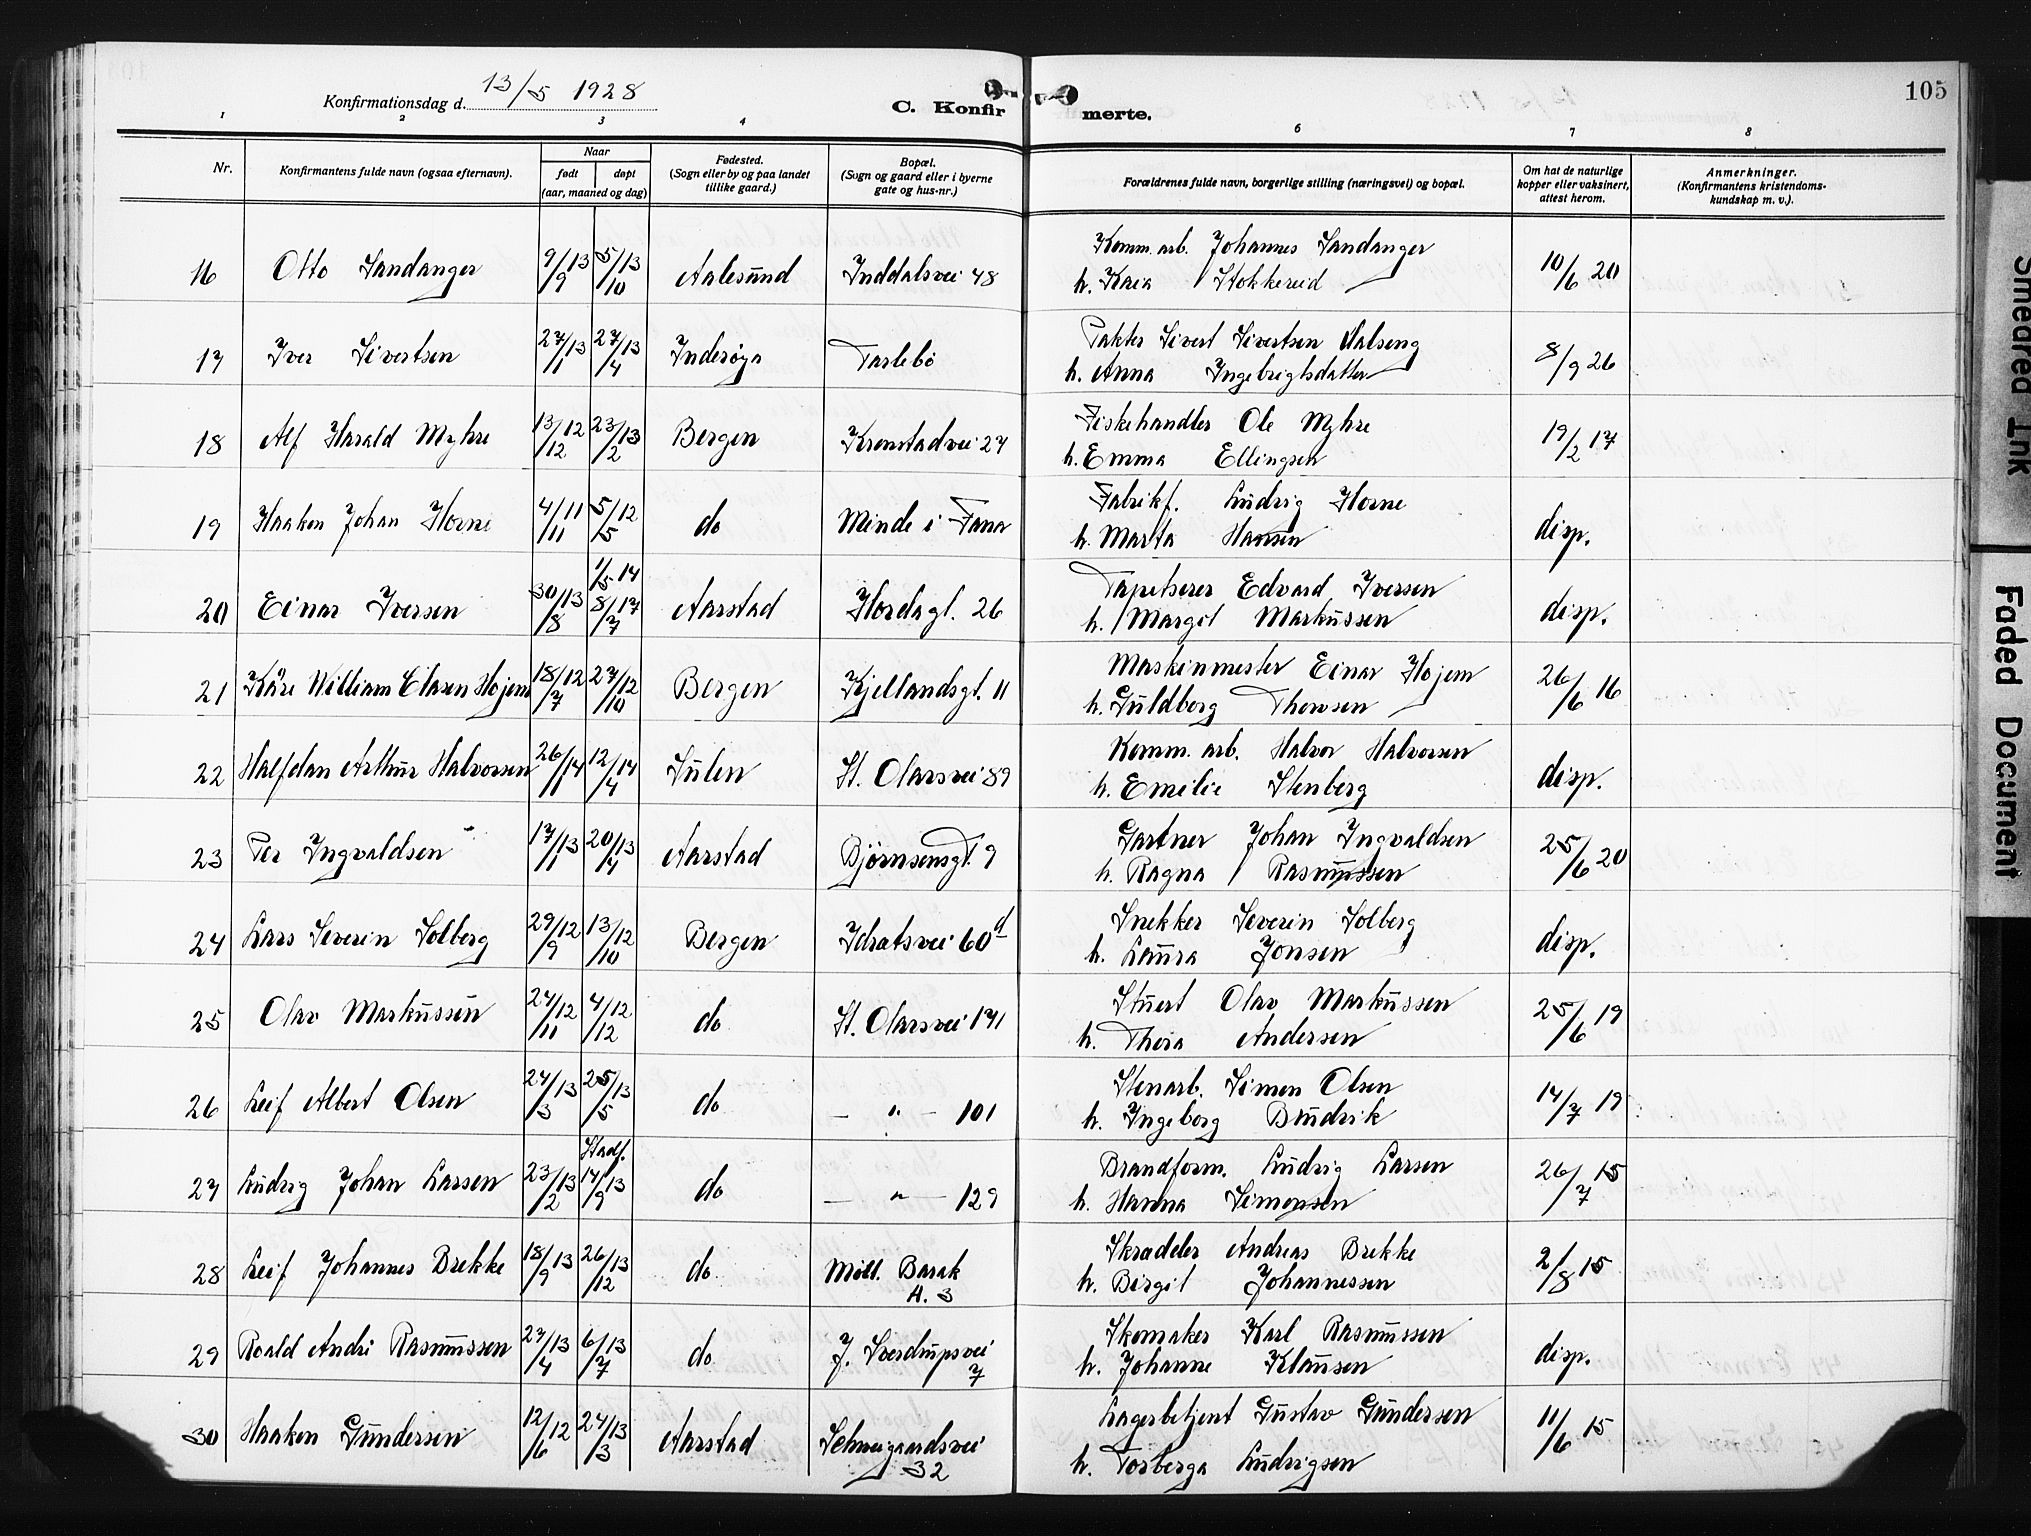 105
Konfirmationsdag d. 13/5 1928
C. Konfirmerte.
1 2 3 4 6 7 8
Nr.
Konfirmantens fulde navn (ogsaa efternavn).
Naar
født døpt
(aar, maaned og dag)
Fødested.
(Sogn eller by og paa landet
tillike gaard.)
Bopæl.
(Sogn og gaard eller i byerne
gate og hus-nr.)
Forældrenes fulde navn, borgerlige stilling (næringsvei) og bopæl.
Om hat de naturlige
kopper eller vaksinert,
attest herom.
Anmerkninger.
(Konfirmantens kristendoms-
kundskap m. v.).
16 Otto Sandanger 9/9 13 5/10 13 Aalesund Inddalsvei 48 Komm. arb. Johannes Sandanger
h. Kaia Stokkereid 10/6 20
17 Iver Sivertsen 27/1 13 27/4 13 Inderøya Tarlebö Pakter Sivert Sivertsen Valseng
h. Anna Ingebrigtsdatter 8/9 26
18 Alf Harald Myhre 13/12 12 23/2 13 Bergen Kronstadvei 27 Fiskehandler Ole Myhre
h. Emma Ellingsen 19/2 17
19 Haakon Johan Horne 4/11 11 5/5 12 do Minde i Fana Fabrikf. Ludvig Horne
h. Marta Hansen disp.
20 Einar Iversen 30/8 13 1/5 14 8/7 17 Aarstad Hordagt. 26 Tapetserer Edvard Iversen
h. Margit Markussen disp.
21 Kåre William Elasen Hojem 18/7 12 27/10 12 Bergen Kjellandsgt. 11 Maskinmester Einar Hojem
h. Guldborg Thowsen 26/6 16
22 Halfdan Arthur Halvorsen 26/1 14 12/4 14 Sulen St. Olavsvei 89 Komm. arb. Halvor Halvorsen
h. Emilie Stenberg disp.
23 Per Ingvaldsen 17/1 13 20/4 13 Aarstad Bjørnsensgt. 9 Gartner Johan Ingvaldsen
h. Ragna Rasmussen 25/6 20
24 Lars Severin Solberg 29/9 12 13/10 12 Bergen Idratsvei 60d Snekker Severin Solberg
h. Laura Jonsen disp.
25 Olav Markussen 24/11 12 4/12 12 do St. Olavsvei 131 Stuert Olav Markussen
h. Thora Andersen 25/6 19
26 Leif Albert Olsen 24/3 13 25/5 13 do — " — 101 Stenarb. Simon Olsen
h. Ingeborg Budvik 14/7 19
27 Ludvig Johan Larsen 23/2 13 Stadf. 14/9 13 do — " — 129 Brandform. Ludvig Larsen
h. Hanna Simonsen 26/7 15
28 Leif Johannes Brekke 18/9 13 26/12 13 do Möll. Barak
H. 3 Skradeler Andreas Brekke
h. Birgit Johannessen 2/8 15
29 Roald Andri Rasmussen 27/4 13 6/7 13 do J. Sverdrupsvei
7 Skomaker Karl Rasmussen
h. Johanne Klausen disp.
30 Haakon Gundersen 12/6 12 24/3 13 Aarstad Schweigaardsvei
32 Lagerbetjent Gustav Gundersen
h. Torberga Ludvigsen 11/6 15
Smeared Ink
Faded Document